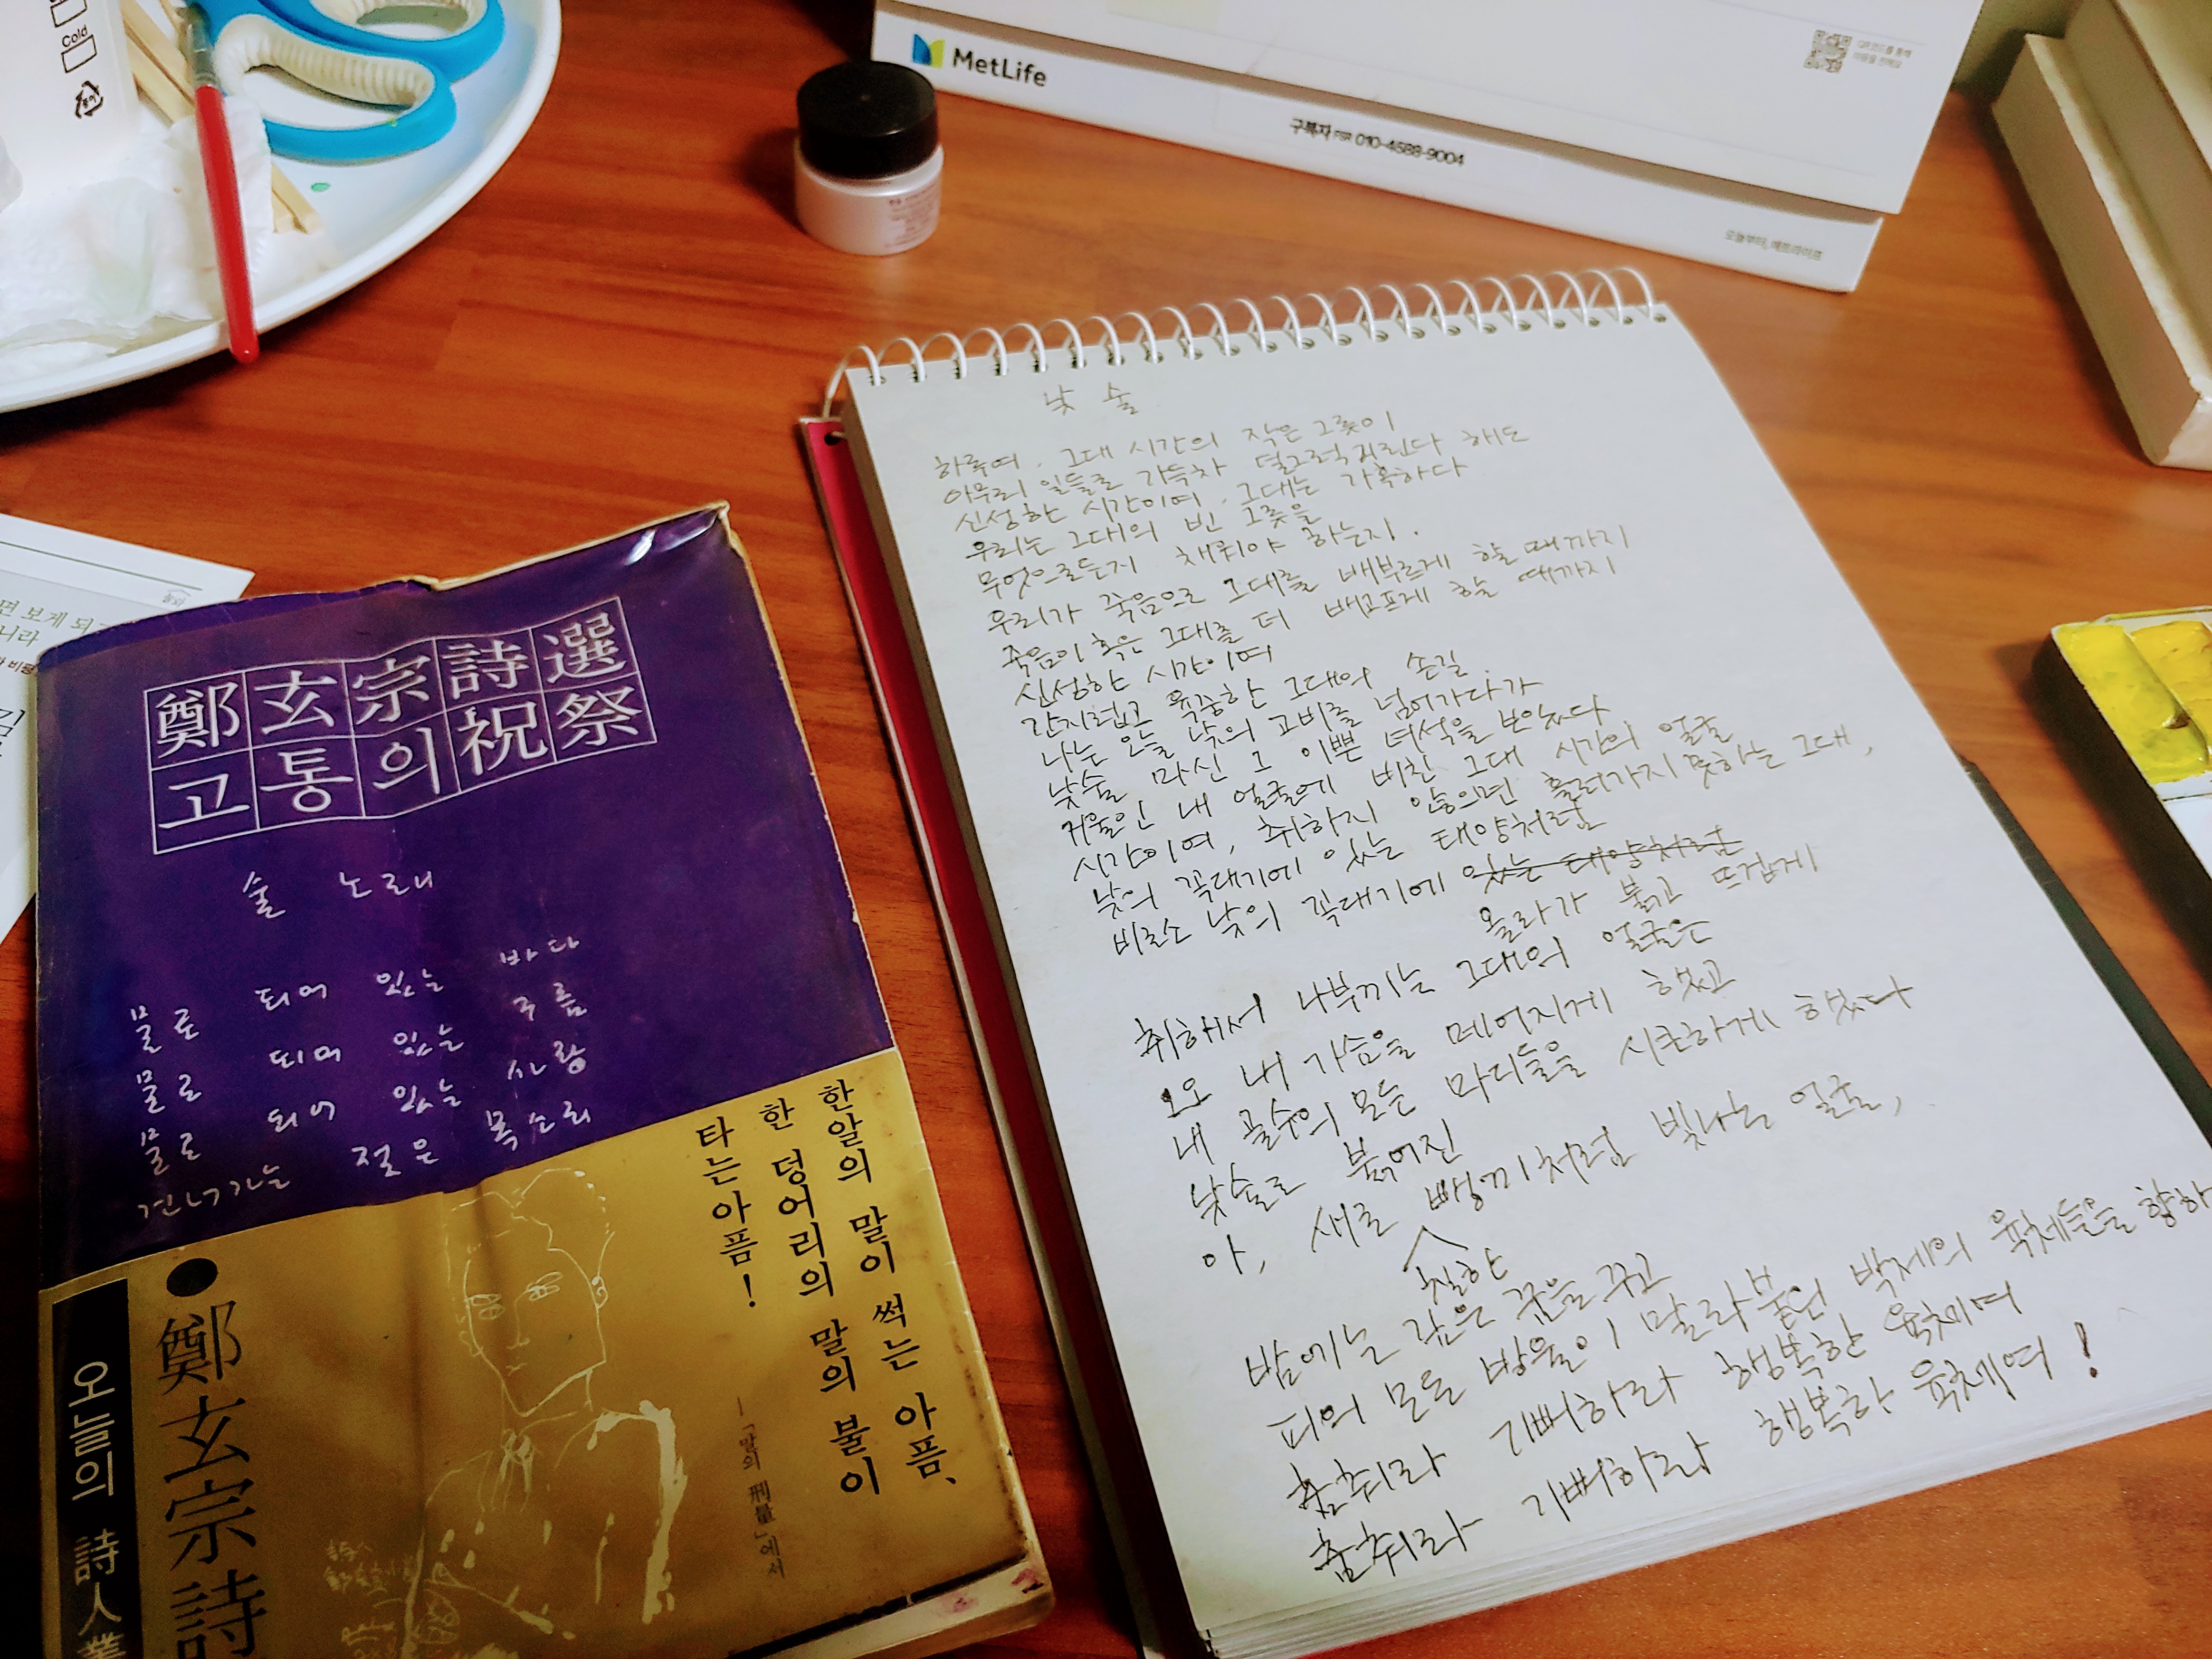 Cold
MetLife
구복자 FSR 010-4588-9004
오늘부터, 메트라이프
면 보게 되
니라
鄭玄宗詩選
고통의祝祭
술 노래
물로 되어 있는 바다
물로 되어 있는 구름
물로 되어 있는 사랑
건너가는 젖은 목소리
한알의 말이 썩는 아픔,
한 덩어리의 말의 불이
타는 아픔!
—「말의 刑量」에서
鄭玄宗詩
오늘의 詩人叢
낮 술
하루여, 그대 시간의 작은 그릇이
아무리 일들로 가득차 덜그럭거린다 해도
신성한 시간이여, 그대는 가혹하다
우리는 그대의 빈 그릇을
무엇으로든지 채워야 하는지.
우리가 죽음으로 그대를 배부르게 할 때까지
죽음이 혹은 그대를 더 배고프게 할 때까지
신성한 시간이여
간지럽고 육중한 그대의 손길.
나는 오늘 낮의 고비를 넘어가다가
낮술 마신 그 이쁜 녀석을 보았다
거울인 내 얼굴에 비친 그대 시간의 얼굴
시간이여, 취하지 않으면 흘러가지 못하는 그대,
낮의 꼭대기에 있는 태양처럼
비로소 낮의 꼭대기에 있는 태양처럼
올라가 붉고 뜨겁게
취해서 나부끼는 그대의 얼굴은
오오 내 가슴을 메어지게 했고
내 골수의 모든 마디들을 시큰하게 했다
낮술로 붉어진
아, 새로 뼁끼처럼 빛나는 얼굴,
칠한
밤에는 깊은 꿈을 꾸고
피의 모든 방울이 말라붙은 박제의 육체들을 향하
춤춰라 기뻐하라 행복한 육체여
춤춰라 기뻐하라 행복한 육체여!